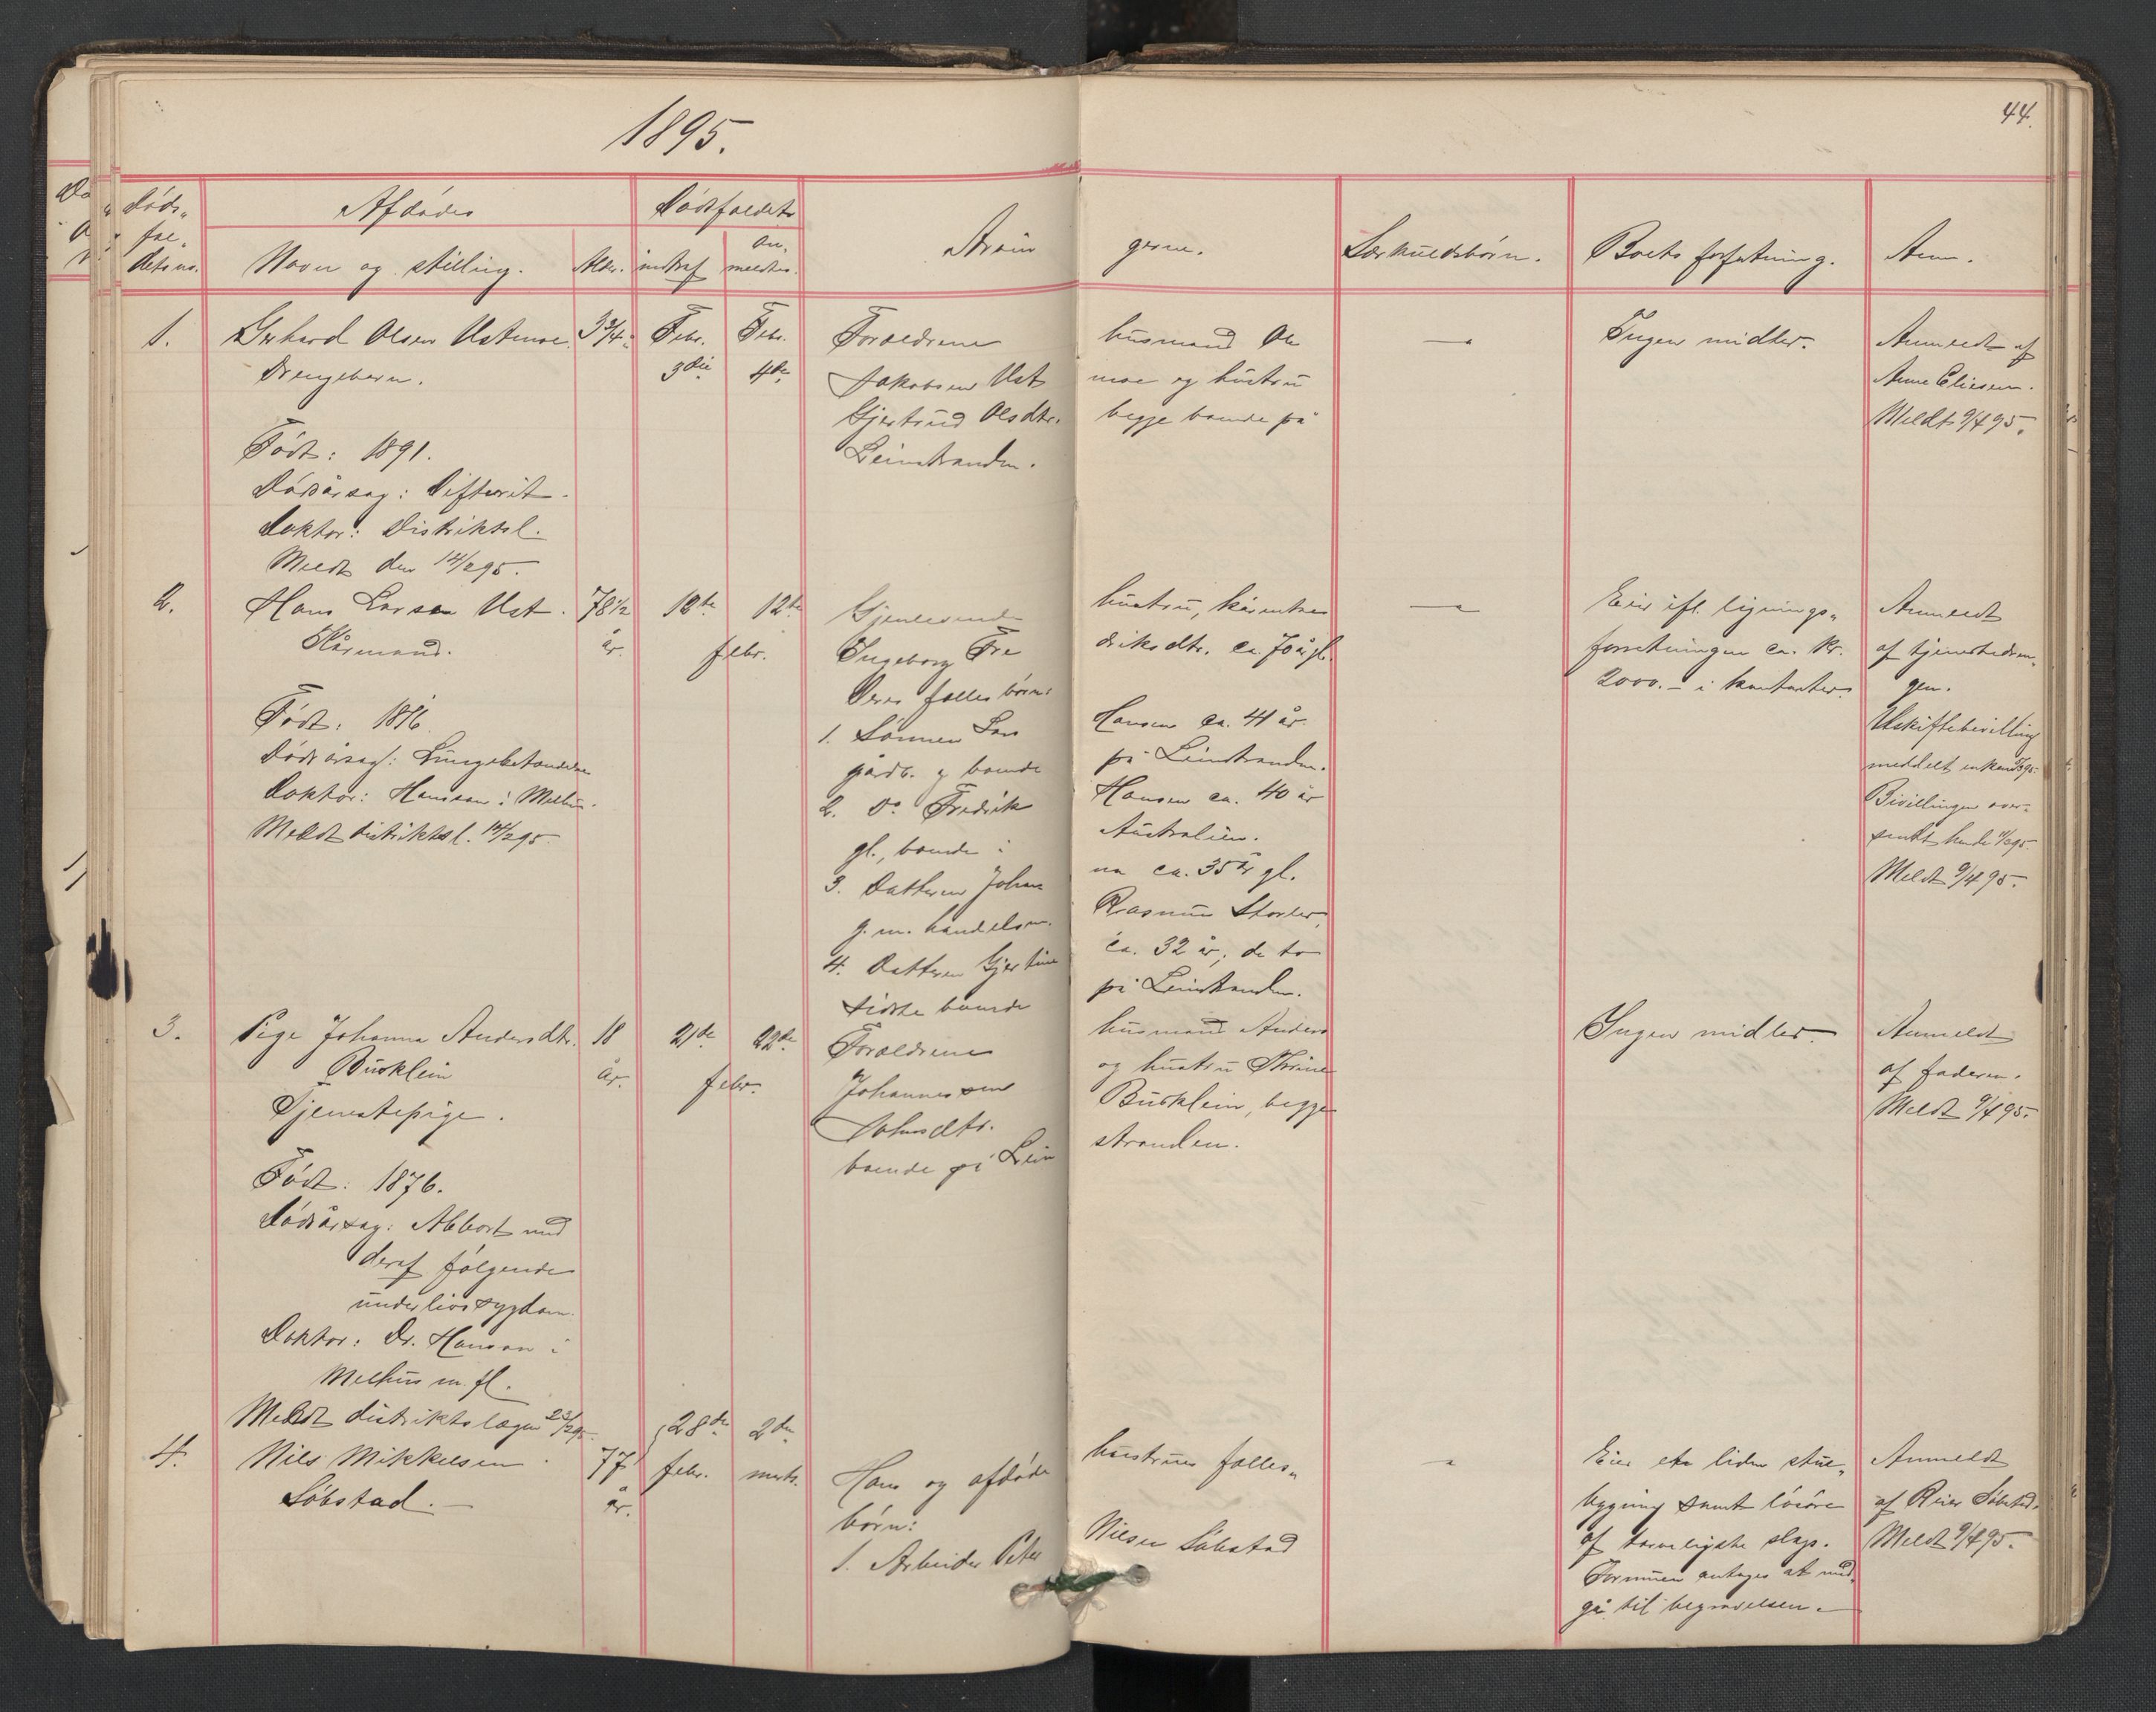 1895.
44.
Døds-
fal-
dets no.
Afdødes
Navn og stilling.
Alder.
Dødsfaldets
indtraf
an-
meldtes.
Arvin
gerne.
Særkuldsbørn.
Boets forfatning.
Anm.
1.
Gerhard Olsen Ustmoe.
Drengebarn.
Født: 1891.
Dødsårsag: Difterit.
Doktor: Distriktsl.
Meldt den 14/2 95.
3 3/4
Febr.
3die
Febr.
4de
Forældrene husmand Ole
Jakobsen Ust moe og hustru
Gjertrud Olsdtr. begge boende på
Leinstranden.
—
Ingen midler.
Anmeldt af
Anne Eliesen.
Meldt 9/4 95.
2.
Hans Larsen Ust.
Kårmand.
Født: 1816.
Dødsårsag: Lungebetændelse
Doktor: Hansson i Melhus.
Meldt distriktsl. 14/2 95.
78 1/2
år.
12te 12te
febr.
Gjenlevende hustru, kårenke
Ingeborg Fre driksdtr. ca. 70 år gl.
Deres fælles børn:
1. Sønnen Lars Hansen ca. 41 år.
gårdb. og boende på Leinstranden.
2. Do Fredrik Hansen ca. 40 år
gl., boende i Australien.
3. Datteren Johan na ca. 35 år gl.
g. m. handelsm. Rasmus Storler,
4. Datteren Gjertine ca. 32 år, de to
sidste boende på Leinstranden.
—
Eier ifl. lignings-
forretningen ca. kr.
2000.- i kontanter.
Anmeldt
af tjenestedren-
gen.
Uskiftebevilling
meddelt enken
Bevillingen over-
sendt hende
Meldt 9/4 95.
3.
Pige Johanna Andersdtr.
Busklein
Tjenestepige.
Født: 1876.
Dødsårsag: Abbort med
deraf følgende
underlivssygdom.
Doktor: Dr. Hansson i
Melhus m. fl.
Meldt distriktslægen 23/2 95.
18
år.
21de 22de
febr.
Forældrene husmand Anders
Johannessen og hustru Thrine
Johnsdtr. Busklein, begge
boende på Lein stranden.
Ingen midler.
Anmeldt
af faderen.
Meldt 9/4 95.
4.
Nils Mikkelsen
Søbstad.—
77
år.
28de
febr.
2den
marts.
Hans og afdøde hustrues fælles-
børn:
1. Arbeider Peter Nilsen Søbstad
—
Eier en liden stue-
bygning samt løsøre
af tarveligste slags.
Formuen antages at med-
gå til begravelsen.—
Anmeldt
af Reier Søbstad.
Meldt 9/4 95.